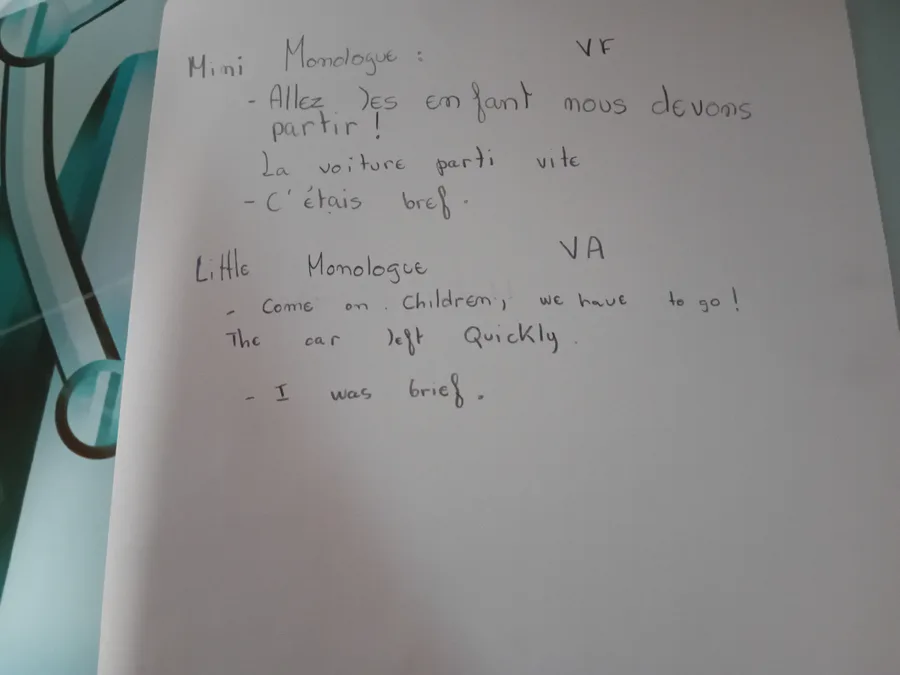 Mini Monologue : VF
- Allez les enfant nous devons
partir !
La voiture parti vite
- C'étais bref.
Little Monologue VA
- Come on . Children, we have to go !
The car left Quickly.
- I was brief.